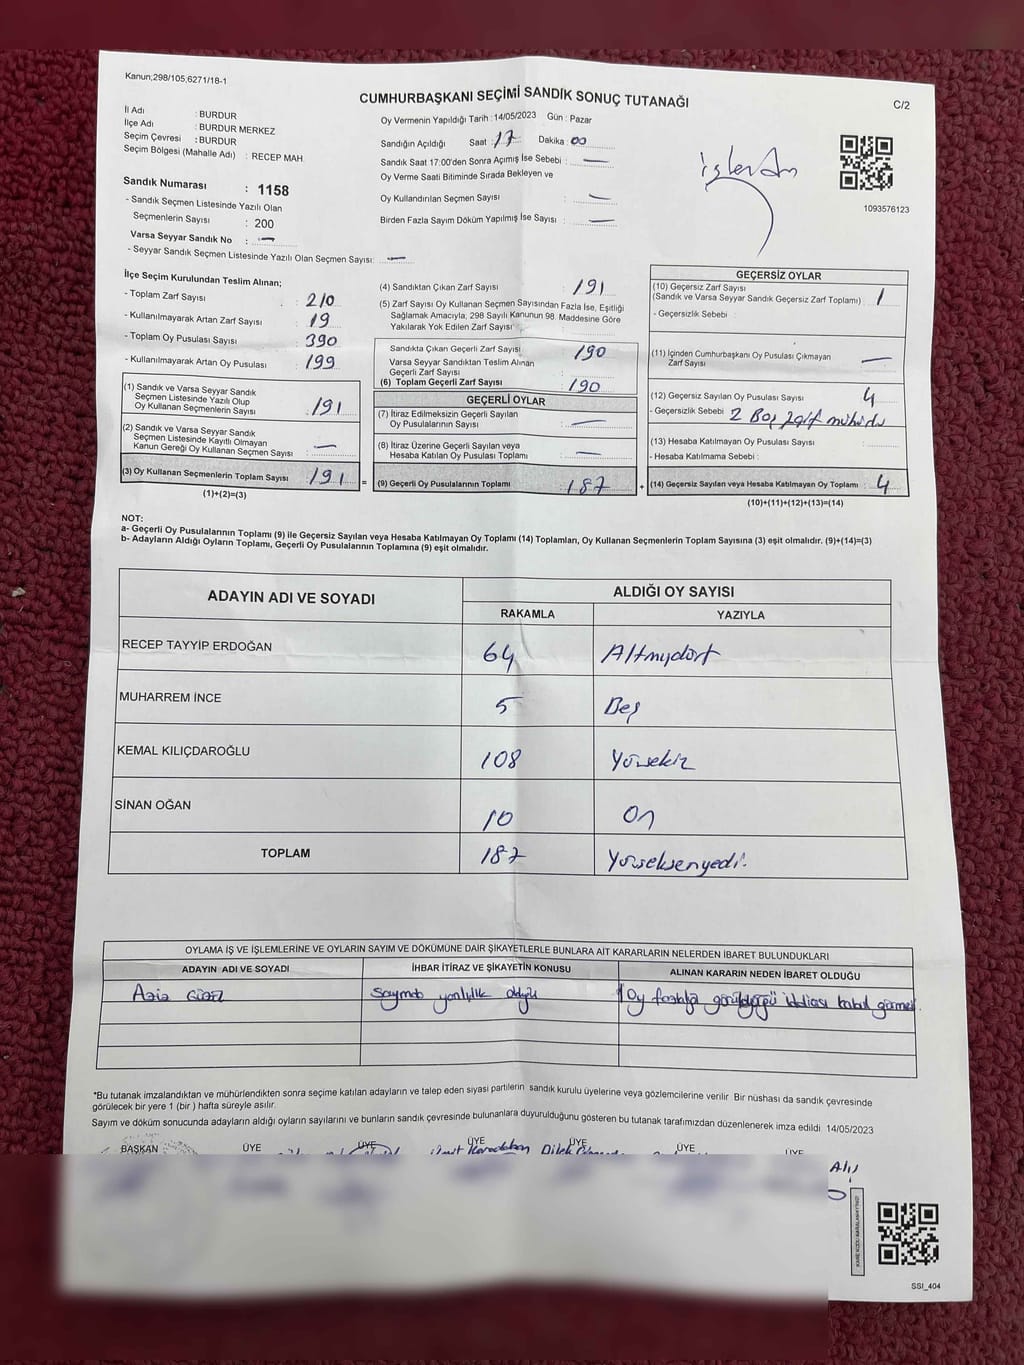 Kanun;298/105,6271/18-1
CUMHURBAŞKANI SEÇİMİ SANDIK SONUÇ TUTANAĞI
C/2
İl Adı : BURDUR
İlçe Adı : BURDUR MERKEZ
Seçim Çevresi : BURDUR
Seçim Bölgesi (Mahalle Adı) : RECEP MAH.
Sandık Numarası : 1158
- Sandık Seçmen Listesinde Yazılı Olan
Seçmenlerin Sayısı : 200
Varsa Seyyar Sandık No : —
- Seyyar Sandık Seçmen Listesinde Yazılı Olan Seçmen Sayısı: —
Oy Vermenin Yapıldığı Tarih : 14/05/2023 Gün : Pazar
Sandığın Açıldığı Saat : 17 Dakika : 00
Sandık Saat 17:00'den Sonra Açımış İse Sebebi : —
Oy Verme Saati Bitiminde Sırada Bekleyen ve
Oy Kullandırılan Seçmen Sayısı : —
Birden Fazla Sayım Döküm Yapılmış İse Sayısı : —
1093576123
İlçe Seçim Kurulundan Teslim Alınan;
- Toplam Zarf Sayısı : 210
- Kullanılmayarak Artan Zarf Sayısı : 19
- Toplam Oy Pusulası Sayısı : 390
- Kullanılmayarak Artan Oy Pusulası : 199
(1) Sandık ve Varsa Seyyar Sandık
Seçmen Listesinde Yazılı Olup
Oy Kullanan Seçmenlerin Sayısı : 191
(2) Sandık ve Varsa Seyyar Sandık
Seçmen Listesinde Kayıtlı Olmayan
Kanun Gereği Oy Kullanan Seçmen Sayısı : —
(3) Oy Kullanan Seçmenlerin Toplam Sayısı : 191
(1)+(2)=(3)
(4) Sandıktan Çıkan Zarf Sayısı : 191
(5) Zarf Sayısı Oy Kullanan Seçmen Sayısından Fazla İse, Eşitliği
Sağlamak Amacıyla, 298 Sayılı Kanunun 98. Maddesine Göre
Yakılarak Yok Edilen Zarf Sayısı :
Sandıkta Çıkan Geçerli Zarf Sayısı : 190
Varsa Seyyar Sandıktan Teslim Alınan
Geçerli Zarf Sayısı :
(6) Toplam Geçerli Zarf Sayısı : 190
GEÇERLİ OYLAR
(7) İtiraz Edilmeksizin Geçerli Sayılan
Oy Pusulalarının Sayısı : —
(8) İtiraz Üzerine Geçerli Sayılan veya
Hesaba Katılan Oy Pusulası Toplamı : —
(9) Geçerli Oy Pusulalarının Toplamı : 187
GEÇERSİZ OYLAR
(10) Geçersiz Zarf Sayısı
(Sandık ve Varsa Seyyar Sandık Geçersiz Zarf Toplamı) : 1
- Geçersizlik Sebebi :
(11) İçinden Cumhurbaşkanı Oy Pusulası Çıkmayan
Zarf Sayısı : —
(12) Geçersiz Sayılan Oy Pusulası Sayısı : 4
- Geçersizlik Sebebi : 2 Boş 2çift mühürdü
(13) Hesaba Katılmayan Oy Pusulası Sayısı :
- Hesaba Katılmama Sebebi :
(14) Geçersiz Sayılan veya Hesaba Katılmayan Oy Toplamı : 4
(10)+(11)+(12)+(13)=(14)
NOT:
a- Geçerli Oy Pusulalarının Toplamı (9) ile Geçersiz Sayılan veya Hesaba Katılmayan Oy Toplamı (14) Toplamları, Oy Kullanan Seçmenlerin Toplam Sayısına (3) eşit olmalıdır. (9)+(14)=(3)
b- Adayların Aldığı Oyların Toplamı, Geçerli Oy Pusulalarının Toplamına (9) eşit olmalıdır.
ADAYIN ADI VE SOYADI
ALDIĞI OY SAYISI
RAKAMLA YAZIYLA
RECEP TAYYİP ERDOĞAN 64 Altmışdört
MUHARREM İNCE 5 Beş
KEMAL KILIÇDAROĞLU 108 Yüzsekiz
SİNAN OĞAN 10 On
TOPLAM 187 Yüzseksenyedi.
OYLAMA İŞ VE İŞLEMLERİNE VE OYLARIN SAYIM VE DÖKÜMÜNE DAİR ŞİKAYETLERLE BUNLARA AİT KARARLARIN NELERDEN İBARET BULUNDUKLARI
ADAYIN ADI VE SOYADI İHBAR İTİRAZ VE ŞİKAYETİN KONUSU ALINAN KARARIN NEDEN İBARET OLDUĞU
Aziz yanlışlık olduğu 1 Oy iddiası kabul
*Bu tutanak imzalandıktan ve mühürlendikten sonra seçime katılan adayların ve talep eden siyasi partilerin sandık kurulu üyelerine veya gözlemcilerine verilir Bir nüshası da sandık çevresinde
görülecek bir yere 1 (bir ) hafta süreyle asılır.
Sayım ve döküm sonucunda adayların aldığı oyların sayılarını ve bunların sandık çevresinde bulunanlara duyurulduğunu gösteren bu tutanak tarafımızdan düzenlenerek imza edildi 14/05/2023
BAŞKAN ÜYE ÜYE ÜYE ÜYE ÜYE ÜYE
SSI_404